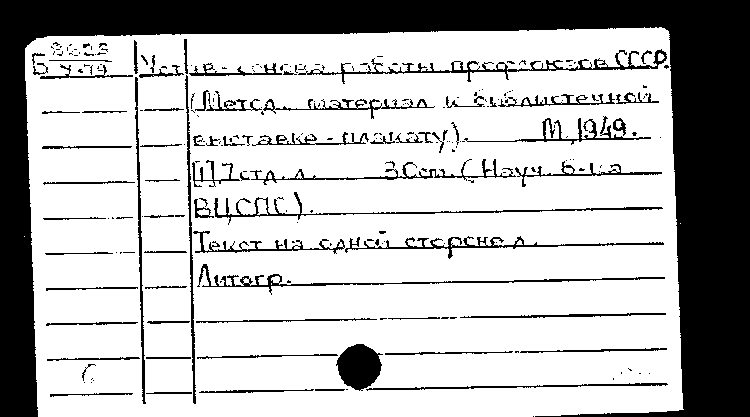 Б 8623
У-79 Устав-основа работы профсоюзов СССР.
(Метод. материал к библиотечной
выставке-плакату). М., 1949.
[1], 7 отд. л. 30 см. (Науч. б-ка
ВЦСПС).
Текст на одной стороне л.
Литогр.